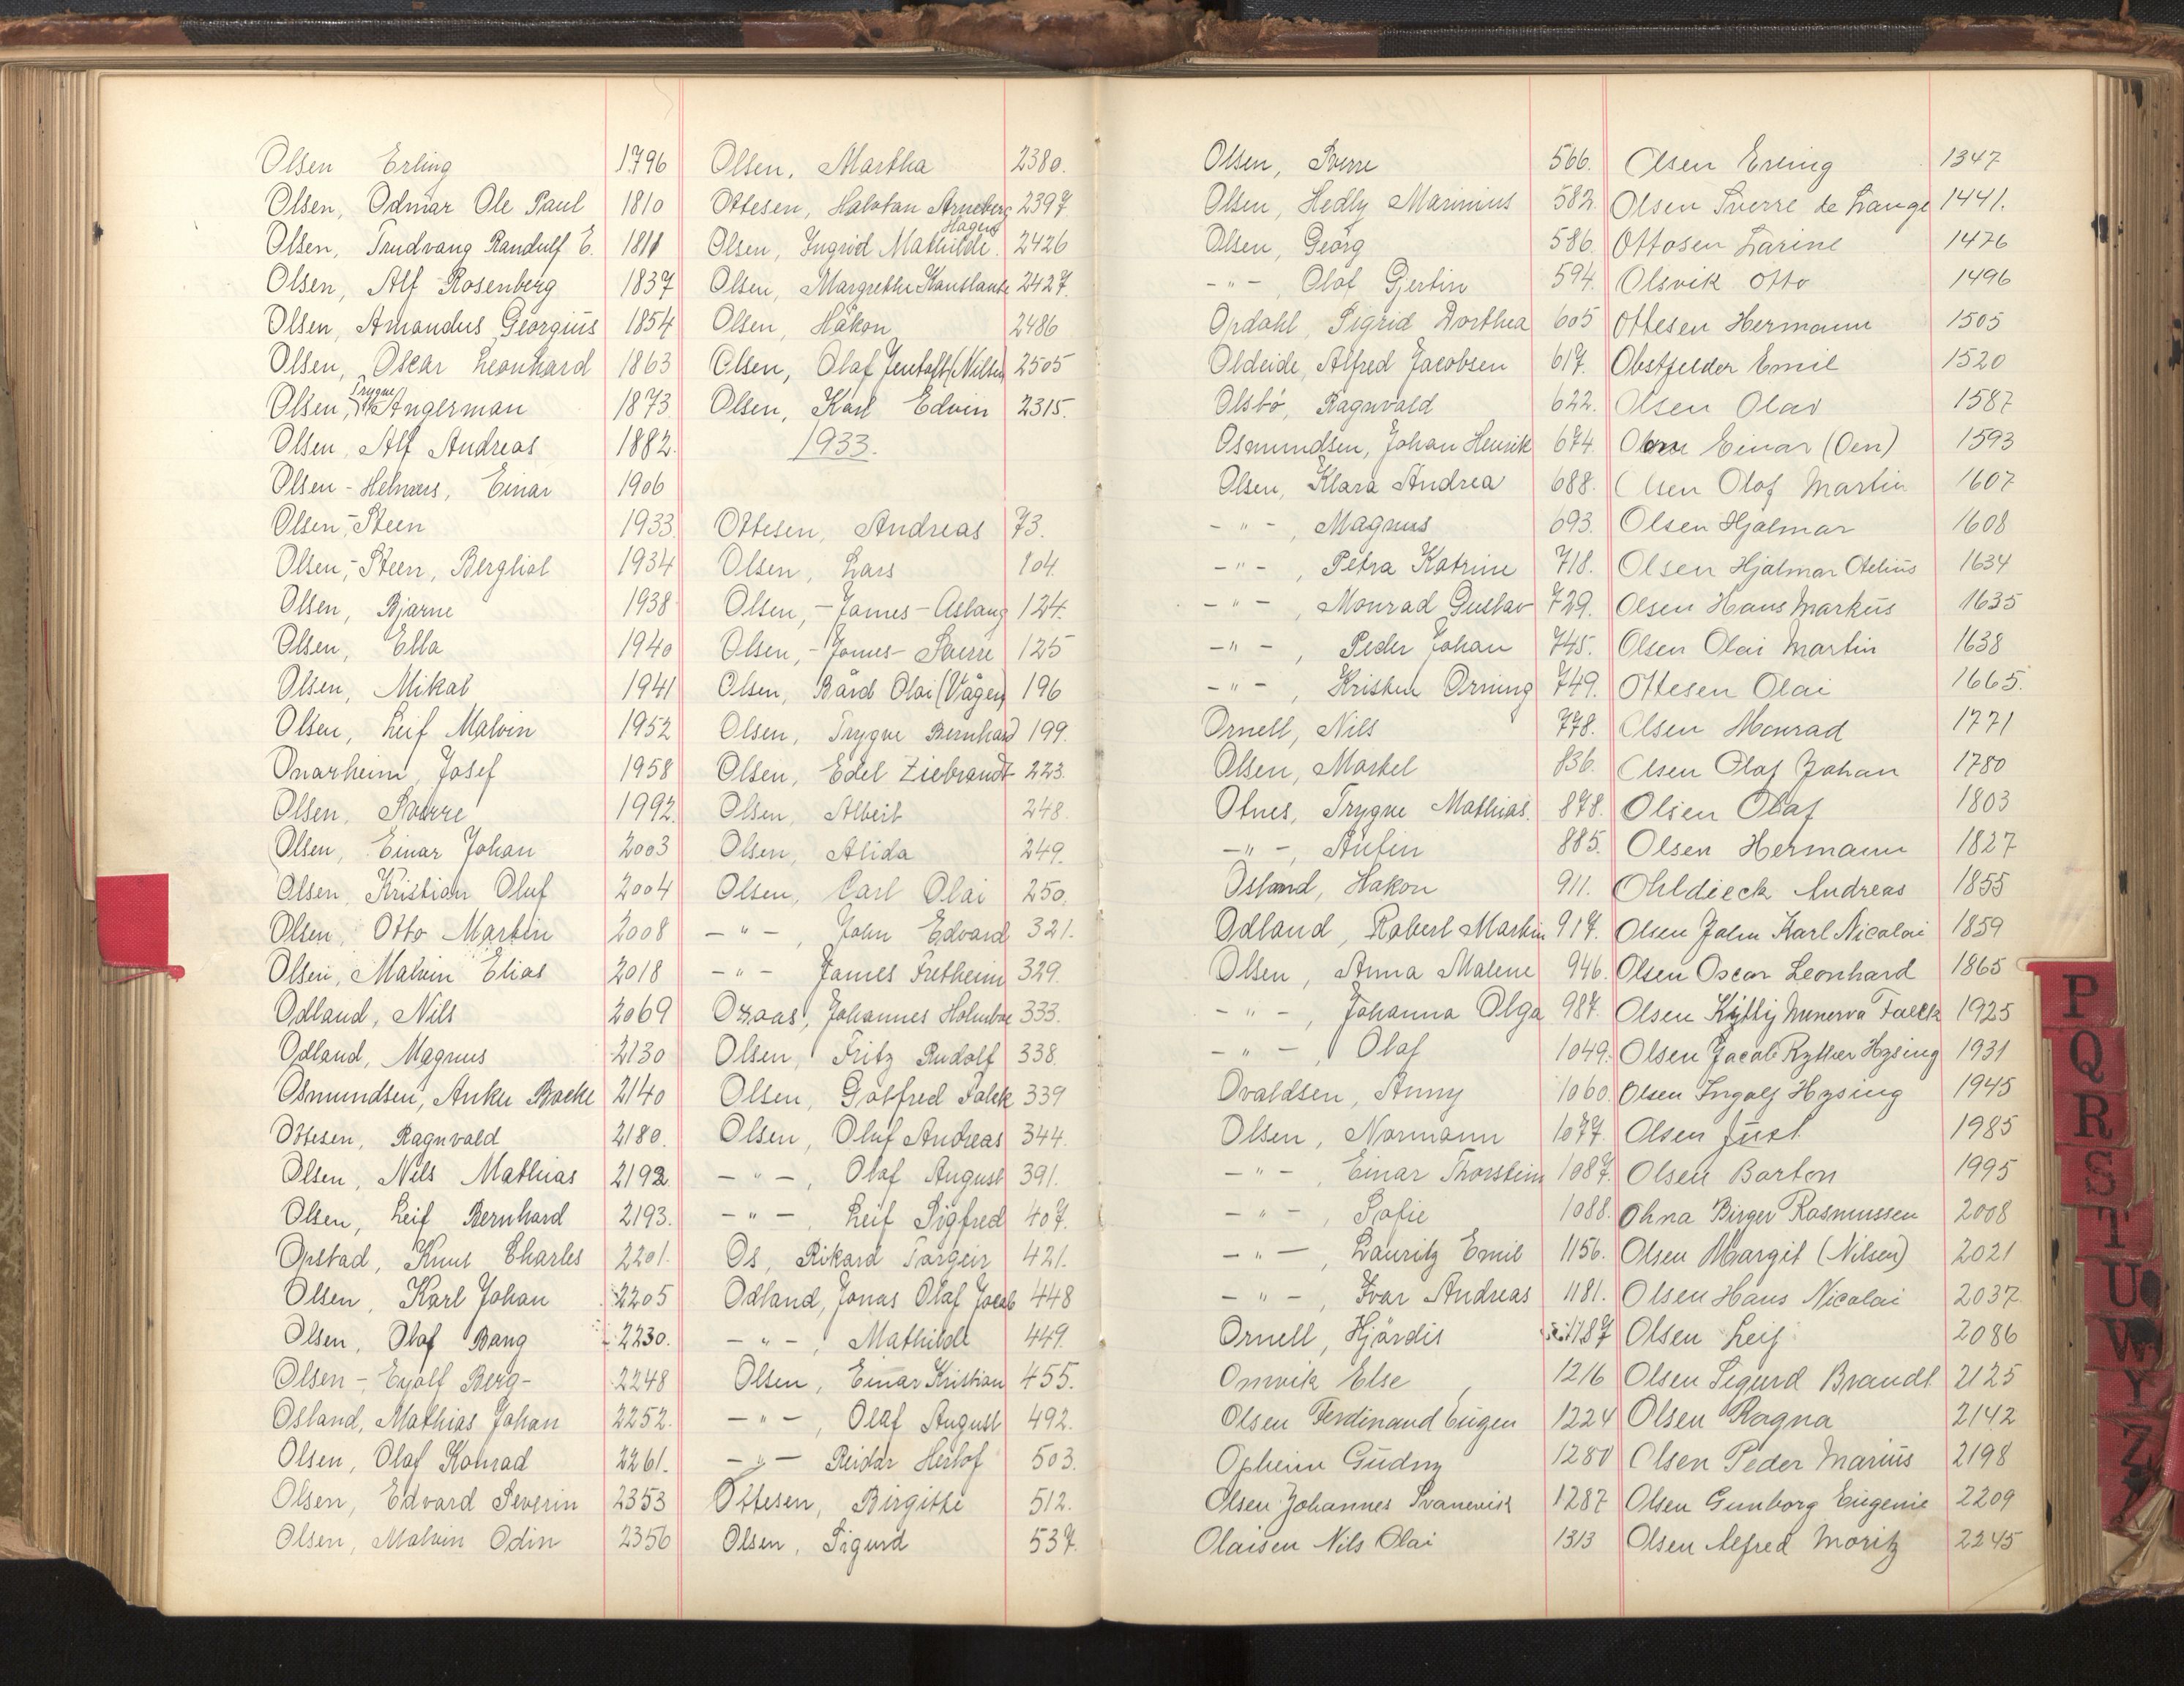 Olsen Erling 1796
Olsen, Odmar Ole Paul 1810
Olsen, Trudvang Randulf E. 1811
Olsen, Alf Rosenberg 1837
Olsen, Amandus Georgius 1854
Olsen, Oscar Leonhard 1863
Olsen, Trygve Angerman 1873
Olsen, Alf Andreas 1882.
Olsen - Helmers, Einar 1906
Olsen,-Steen 1933.
Olsen,-Steen, Bergliot 1934
Olsen, Bjarne 1938
Olsen, Ella 1940
Olsen, Mikal 1941
Olsen, Leif Malvin 1952
Onarheim, Josef 1958
Olsen, Sverre 1992.
Olsen, Einar Johan 2003
Olsen, Kristian Oluf 2004
Olsen, Otto Martin 2008
Olsen, Malvin Elias 2018
Odland, Nils 2069
Odland, Magnus 2130
Osmundsen, Anku Backe 2140
Ottesen, Ragnvald 2180.
Olsen, Nils Mathias 2192
Olsen, Leif Bernhard 2193.
Opstad, Knut Charles 2201.
Olsen, Karl Johan 2205
Olsen, Olaf Bang 2230.
Olsen - Eyolf Berg- 2248
Osland, Mathias Johan 2252.
Olsen, Olaf Konrad 2261.
Olsen, Edvard Severin 2353
Olsen, Malvin Odin 2356
Olsen, Martha 2380.
Ottesen, Halvdan Arneberg 2397.
Hagers
Olsen, Ingrid Mathilde. 2426
Olsen, Margrethe Konstanse 2427.
Olsen, Håkon 2486
Olsen, Olaf Jentoft (Nilsen) 2505
Olsen, Karl Edvin 2315.
1933.
Ottesen, Andreas 73.
Olsen, Lars 104.
Olsen, -James- Aslaug 124.
Olsen,-James- Sverre 125
Olsen, Bård Olai (Vågen) 196
Olsen, Trygve Bernhard 199.
Olsen, Edel Ziebrandt 223.
Olsen, Albert 248.
Olsen, Alida 249.
Olsen, Carl Olai 250.
- " - , John Edvard 321.
- " - James Fretheim 329.
Oraas, Johannes Holmboe 333.
Olsen, Fritz Rudolf 338.
Olsen, Gotfred Falck 339
Olsen, Oluf Andreas 344.
- " - , Olaf August 391.
- " - , Leif Sigfred 407.
Os, Rikard Torgeir 421.
Odland, Jonas Olaf Jacob 448
- " - , Mathilde 449.
Olsen, Einar Kristian 455.
- " - , Olaf August 492.
- " - Reidar Herlof 503.
Ottesen, Birgitte 512.
Olsen, Sigurd 537.
Olsen, Sverre 566.
Olsen, Hedly Marinius 582.
Olsen, Georg 586.
- " - , Olaf Gjertin 594.
Opdahl, Sigrid Dorthea 605
Oldeide, Alfred Jacobsen 617.
Olsbö, Ragnvald 622.
Osmundsen, Johan Henrik 674.
Olsen, Klara Andrea 688.
- " - , Magnus 693.
- " - , Petra Katrine 718.
- " - , Monrad Gustav 729.
- " - , Peder Johan 745.
- " - , Kristen Orning 749.
Ornell, Nils 778.
Olsen, Maskel 836.
Otnes, Trygve Mathias. 878.
- " - , Anfin 885.
Osland, Hakon 911.
Odland, Robert Martin 917.
Olsen, Anna Malene 946.
- " - , Johanna Olga 987.
- " - , Olaf 1049.
Ovaldsen, Anny 1060.
Olsen, Normann 1077.
- " - , Einar Thorstein 1087.
- " - , Sofie 1088.
- " - , Lauritz Emil 1156.
- " - , Ivar Andreas 1181.
Ornell, Hjördis 1187
Omvik Else , 1216
Olsen Ferdinand Eugen 1224
Opheim Gudny 1280
Olsen Johannes Svanevik 1287
Olaisen Nils Olai 1313
Olsen Erling 1347
Olsen Sverre de Lange 1441.
Ottosen Larine 1476
Olsvik Otto 1496
Ottesen Hermann 1505
Obstfelder Emil 1520
Olsen Olav 1587
Einar (Oen) 1593
Olsen Olaf Martin 1607
Olsen Hjalmar 1608
Olsen Hjalmar Otelius 1634
Olsen Hans Markus 1635
Olsen Olai Martin 1638
Ottesen Olai 1665.
Olsen Monrad 1771
Olsen Olaf Johan 1780
Olsen Olaf 1803
Olsen Hermann 1827
Ohldieck Andreas 1855
Olsen John Karl Nicolai 1859
Olsen Oscar Leonhard 1865
Olsen Kitty Minerva Falck 1925
Olsen Jacob Ryther Hysing 1931
Olsen Ingolf Hysing 1945
Olsen Just 1985
Olsen Barton 1995
Ohna Birger Rasmussen 2008
Olsen Margit (Nilsen) 2021
Olsen Hans Nicolai 2037
Olsen Leif 2086
Olsen Sigurd Brandt 2125
Olsen Ragna 2142
Olsen Peder Marius 2198
Olsen Gunborg Eugenie 2209
Olsen Alfred Moritz 2245
P
Q
R
S
T
U
W
Y
Z